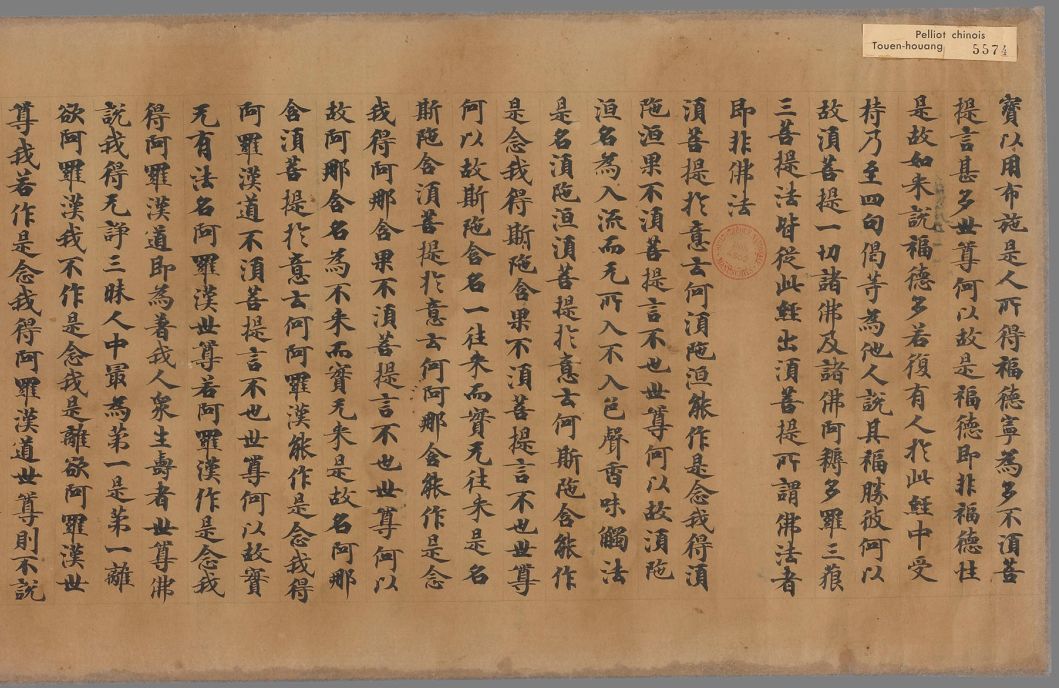 Pelliot chinois
Touen-houang 5574
寶以用布施是人所得福德寧為多不須菩
提言甚多世尊何以故是福德即非福德性
是故如来說福德多若復有人於此經中受
持乃至四句偈等為他人說其福勝彼何以
故須菩提一切諸佛及諸佛阿耨多羅三藐
三菩提法皆從此經出須菩提所謂佛法者
即非佛法
須菩提於意云何須陁洹能作是念我得須
陁洹果不須菩提言不也世尊何以故須陁
洹名為入流而无所入不入色聲香味觸法
是名須陁洹須菩提於意云何斯陁含能作
是念我得斯陁含果不須菩提言不也世尊
何以故斯陁含名一往来而實无往来是名
斯陁含須菩提於意云何阿那含能作是念
我得阿那含果不須菩提言不也世尊何以
故阿那含名為不来而實无来是故名阿那
含須菩提於意云何阿羅漢能作是念我得
阿羅漢道不須菩提言不也世尊何以故實
无有法名阿羅漢世尊若阿羅漢作是念我
得阿羅漢道即為著我人衆生壽者世尊佛
說我得无諍三昧人中最為第一是第一離
欲阿羅漢我不作是念我是離欲阿羅漢世
尊我若作是念我得阿羅漢道世尊則不說